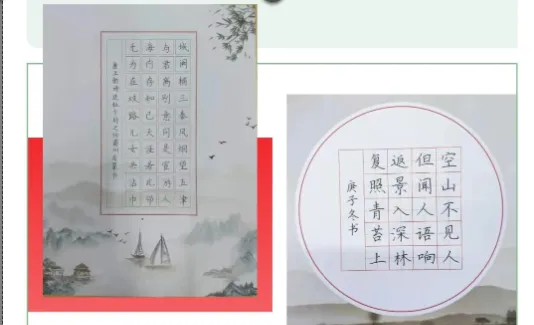 城阙辅三秦风烟望五津
与君离别意同是宦游人
海内存知己天涯若比邻
无为在歧路儿女共沾巾
空山不见人
但闻人语响
返景入深林
复照青苔上
庚子冬书